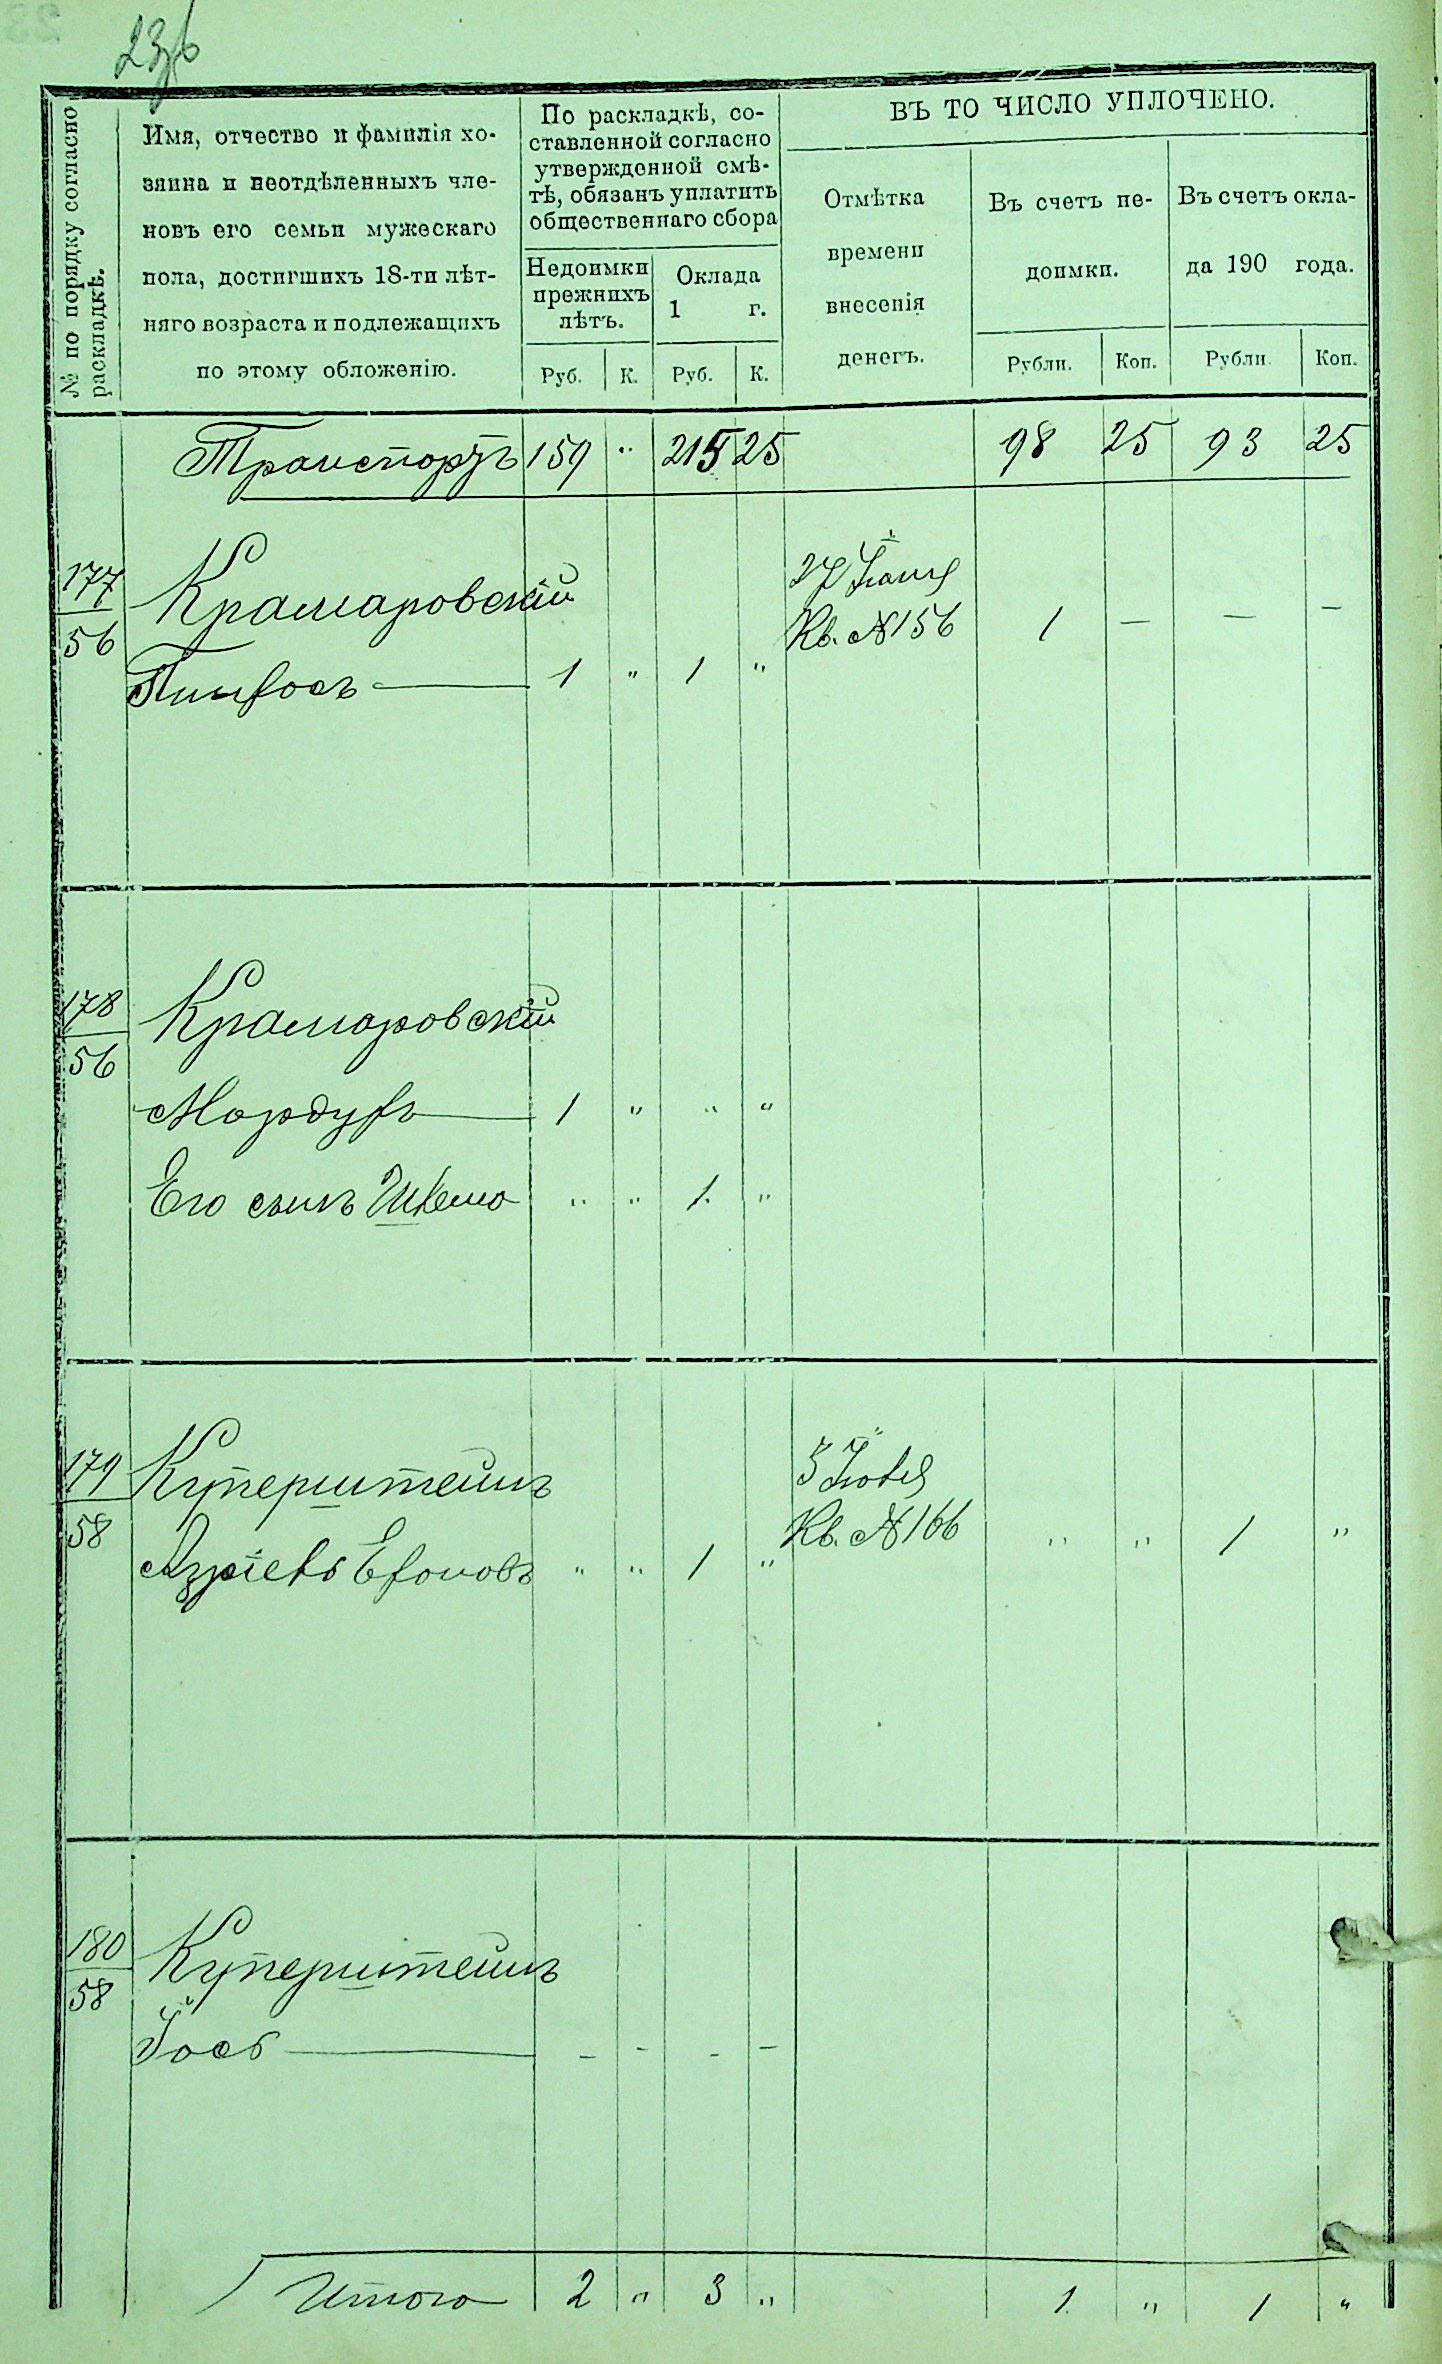 236
№ по порядку согласно
раскладкѣ.
Имя, отчество и фамилія хо-
зяина и неотдѣленныхъ чле-
новъ его семьи мужескаго
пола, достигшихъ 18-ти лѣт-
няго возраста и подлежащихъ
по этому обложенію.
По раскладкѣ, со-
ставленной согласно
утвержденной смѣ-
тѣ, обязанъ уплатить
общественнаго сбора
Недоимки
прежнихъ
лѣтъ.
Оклада
1 г.
Руб. К. Руб. К.
ВЪ ТО ЧИСЛО УПЛОЧЕНО.
Отмѣтка
времени
внесенія
денегъ.
Въ счетъ не-
доимки.
Въ счетъ окла-
да 190 года.
Рубли. Коп. Рубли. Коп.
Транспортъ 159 " 215 25 98 25 93 25
177
56
Крамаровскій
Пинхосъ 1 " 1 "
27
Кв. №156 1 — — —
178
56
Крамаровскій
Мордухъ 1 " " "
Его сынъ Шлемо " " 1. "
179
58
Куперштейнъ
Азріевъ Ефоновъ " " 1 "
3
Кв. №166 " " 1 "
180
58
Куперштейнъ
Іосъ - - - -
Итого 2 " 3 " 1. " 1 "